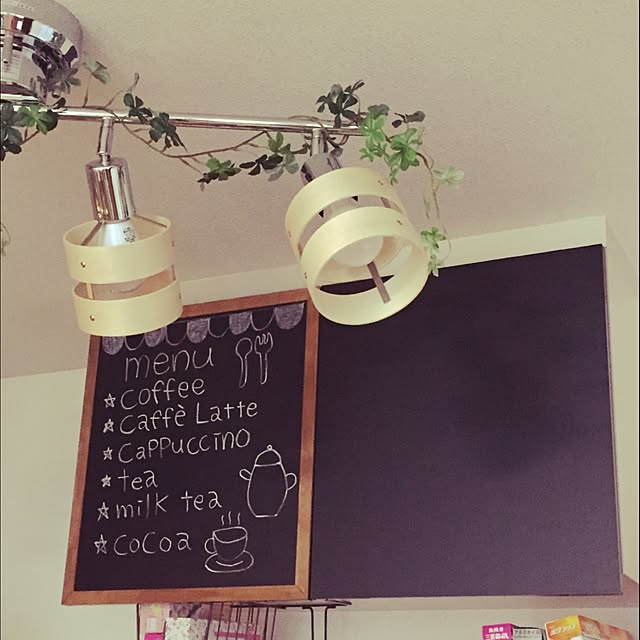 menu
☆ coffee
☆ caffè Latte
☆ cappuccino
☆ tea
☆ milk tea
☆ cocoa